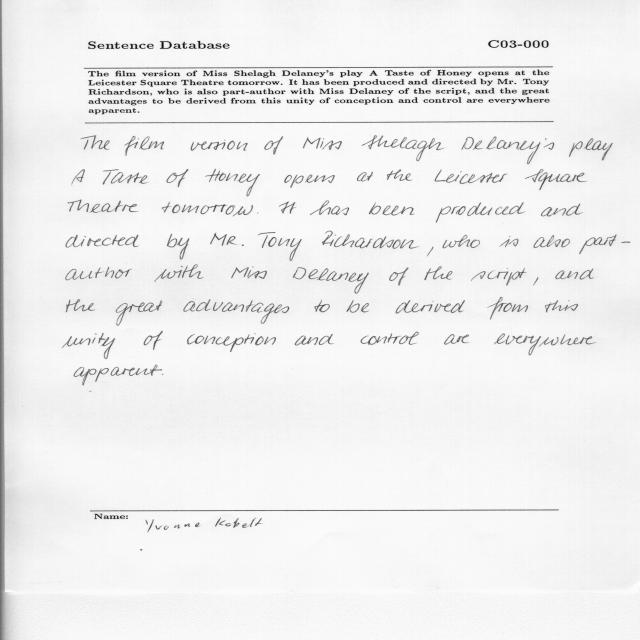 Sentence Database C03-000
The film version of Miss Shelagh Delaney's play A Taste of Honey opens at the
Leicester Square Theatre tomorrow. It has been produced and directed by Mr. Tony
Richardson, who is also part-author with Miss Delaney of the script, and the great
advantages to be derived from this unity of conception and control are everywhere
apparent.
The film version of Miss Shelagh Delaney's play
A Taste of Honey opens at the Leicester Square
Theatre tomorrow. It has been produced and
directed by Mr. Tony Richardson, who is also part-
author with Miss Delaney of the script, and
the great advantages to be derived from this
unity of conception and control are everywhere
apparent.
Name: Yvonne Kobelt